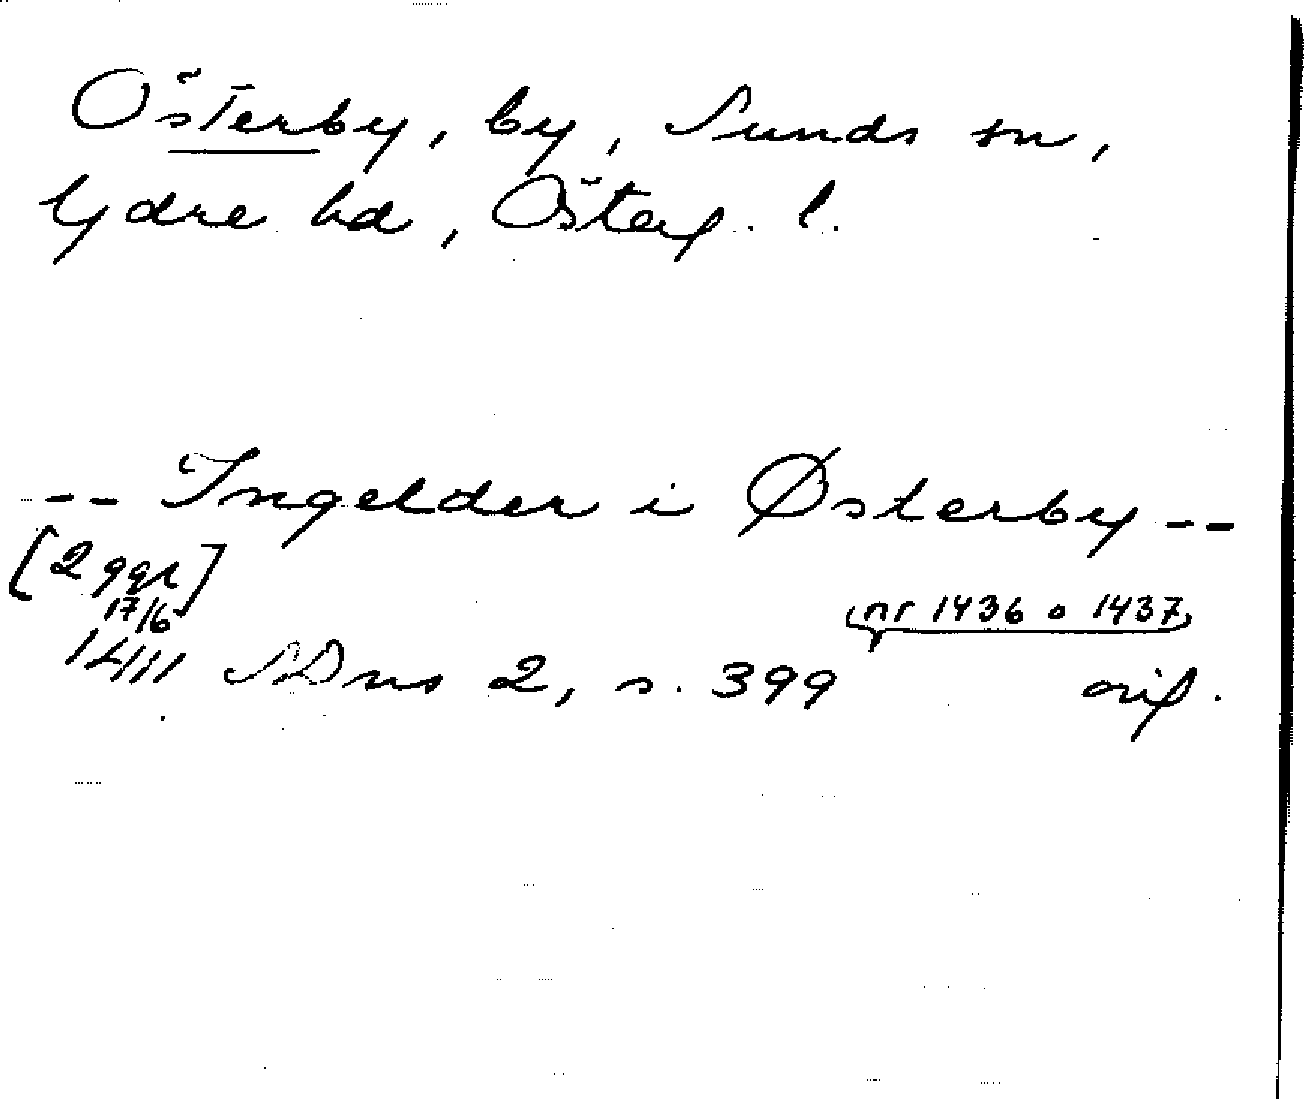 Österby, by, Sunds sn,
Ydre hd, Österg. l.
-- Ingelder i Østerby --
[2 ggr]
17/6 nr 1436 o 1437
1411 SDns 2, s. 399 orig.